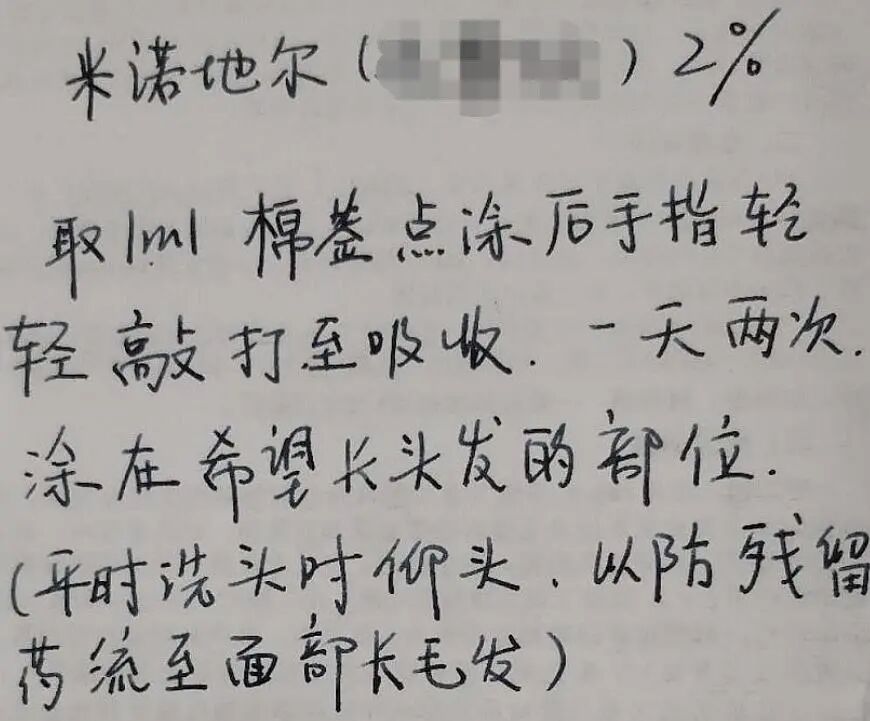 米诺地尔（ ）2%
取1ml 棉签点涂后手指轻
轻敲打至吸收．一天两次．
涂在希望长头发的部位．
（平时洗头时仰头．以防残留
药流至面部长毛发）